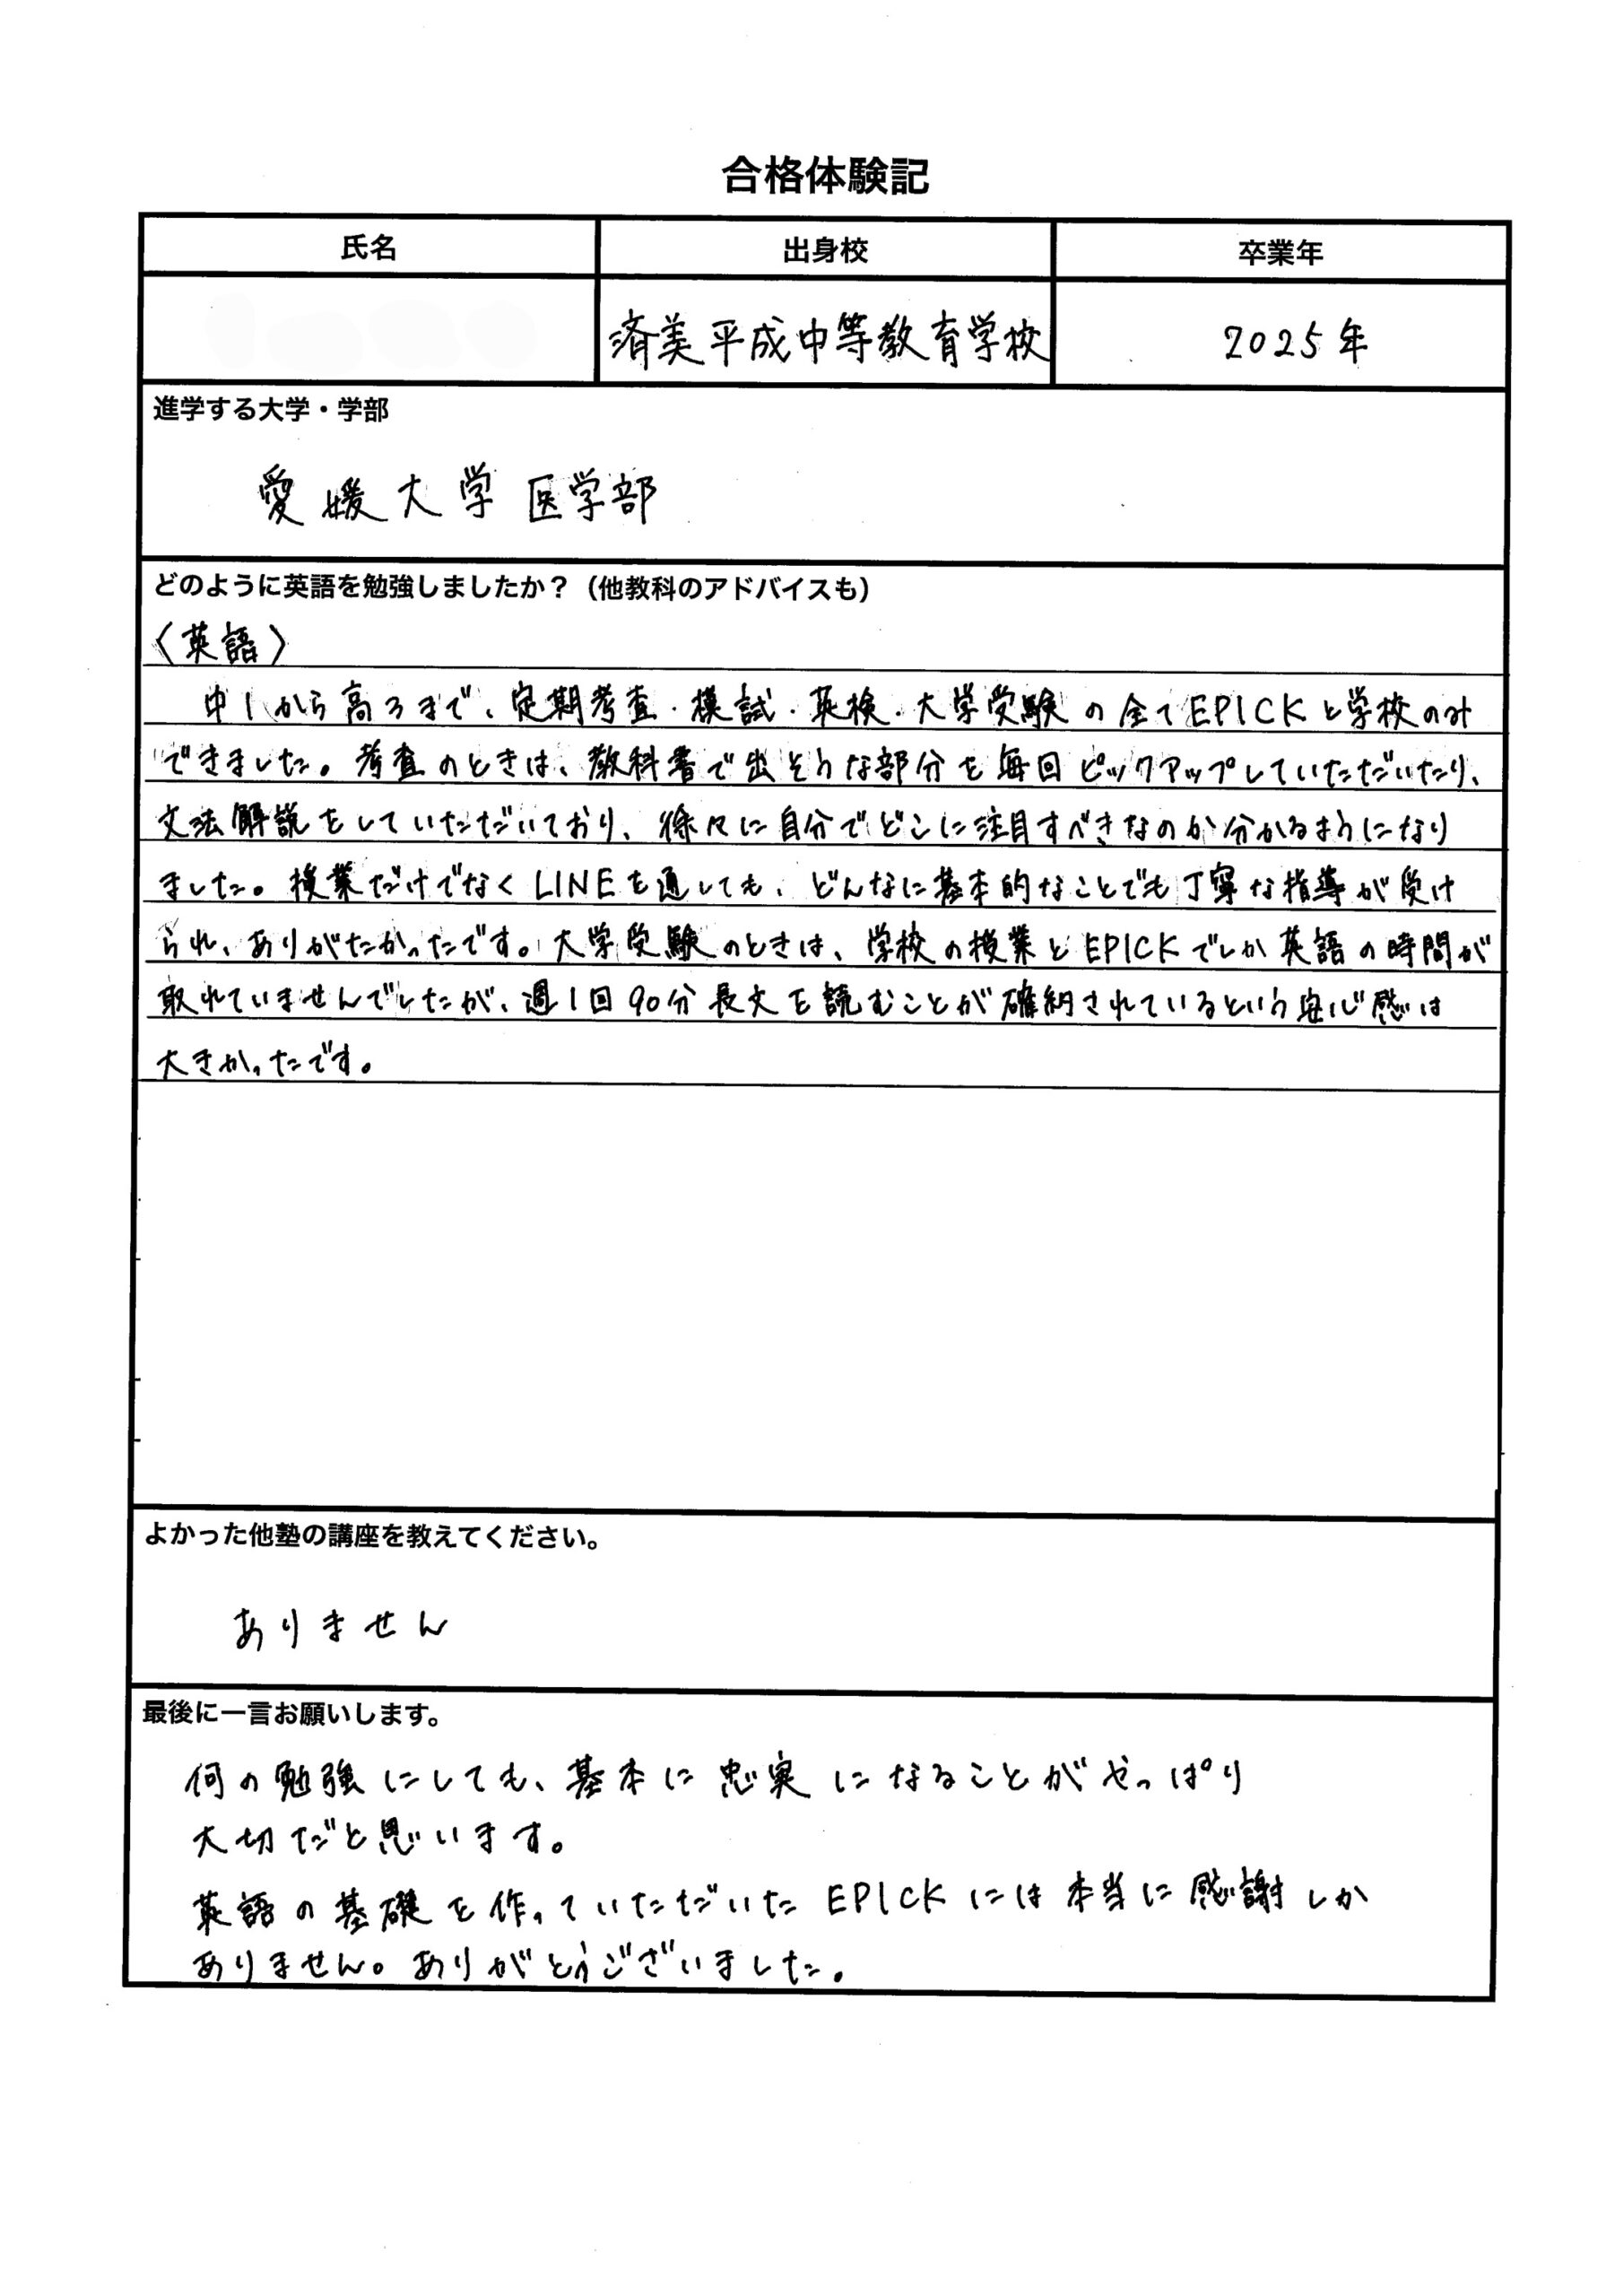 合格体験記
氏名
出身校
卒業年
済美平成中等教育学校
2025年
進学する大学・学部
愛媛大学 医学部
どのように英語を勉強しましたか？（他教科のアドバイスも）
〈英語〉
中1から高3まで、定期考査・模試・英検・大学受験の全てEPICKと学校のみ
できました。考査のときは、教科書で出そうな部分を毎回ピックアップしていただいたり、
文法解説をしていただいており、徐々に自分でどこに注目すべきなのか分かるようになり
ました。授業だけでなくLINEを通しても、どんなに基本的なことでも丁寧な指導が受け
られ、ありがたかったです。大学受験のときは、学校の授業とEPICKでしか英語の時間が
取れていませんでしたが、週1回90分長文を読むことが確約されているという安心感は
大きかったです。
よかった他塾の講座を教えてください。
ありません
最後に一言お願いします。
何の勉強にしても、基本に忠実になることがやっぱり
大切だと思います。
英語の基礎を作っていただいたEPICKには本当に感謝しか
ありません。ありがとうございました。